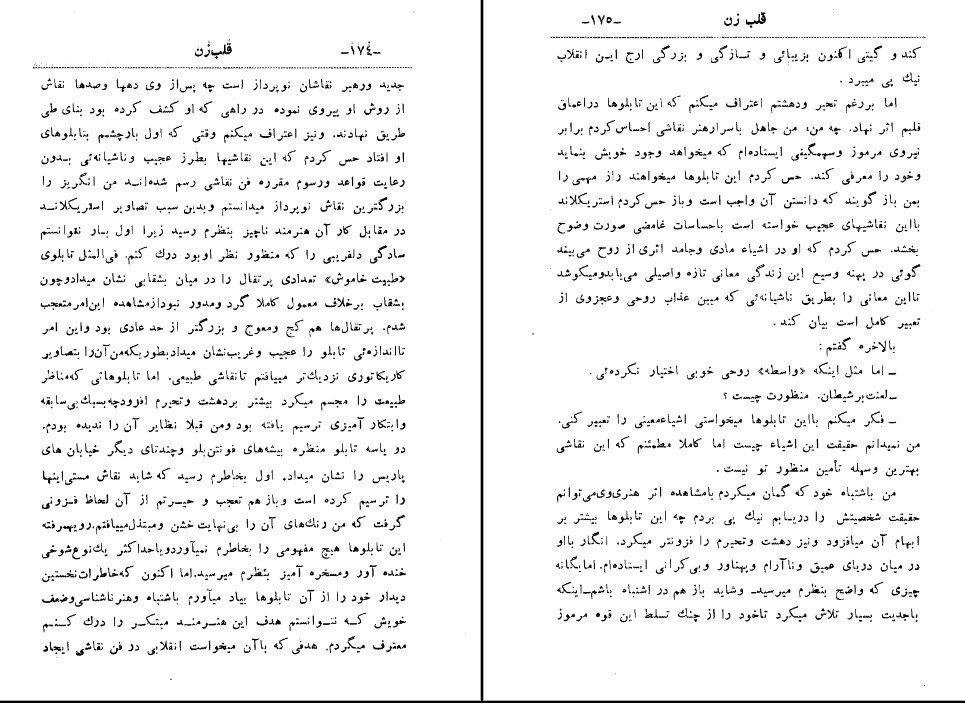 -۱۷٤-
قلب زن
جدید ورهبر نقاشان نوپرداز است چه پس‌از وی دهها وصدها نقاش
از روش او پیروی نموده در راهی که او کشف کرده بود بنای طی
طریق نهادند. ونیز اعتراف میکنم وقتی که اول بارچشم بتابلوهای
او افتاد حس کردم که این نقاشیها بطرز عجیب وناشیانه‌ئی بدون
رعایت قواعد ورسوم مقرره فن نقاشی رسم شده‌اند من انگریز را
بزرگترین نقاش نوپرداز میدانستم وبدین سبب تصاویر استریکلاند
در مقابل کار آن هنرمند ناچیز بنظرم رسید زیرا اول بار نتوانستم
سادگی دلفریبی را که منظور نظر اوبود درك کنم. فی‌المثل تابلوی
«طبیت خاموش» تعدادی پرتقال را در میان بشقابی نشان میدادوچون
بشقاب برخلاف معمول کاملا گرد ومدور نبودازمشاهده این‌امرمتعجب
شدم. پرتقال‌ها هم کج ومعوج و بزرگتر از حد عادی بود واین امر
تااندازه‌ئی تابلو را عجیب وغریب‌نشان میدادبطوریکه‌من‌آن‌رابتصاویر
کاریکاتوری نزدیك‌تر مییافتم تانقاشی طبیعی. اما تابلوهائی که‌مناظر
طبیعت را مجسم میکرد بیشتر بردهشت وتحیرم افزودچه‌بسبك‌بی‌سابقه
وابتکار آمیزی ترسیم یافته بود ومن قبلا نظایر آن را ندیده بودم.
دو یاسه تابلو منظره بیشه‌های فونتن‌بلو وچندتای دیگر خیابان های
پاریس را نشان میداد. اول بخاطرم رسید که شاید نقاش مستی‌اینها
را ترسیم کرده است وباز هم تعجب و حیرتم از آن لحاظ فزونی
گرفت که من رنك‌های آن را بی‌نهایت خشن ومبتذل‌مییافتم.رویهمرفته
این تابلوها هیچ مفهومی را بخاطرم نمیآوردویاحداکثر یك‌نوع‌شوخی
خنده آور ومسخره آمیز بنظرم میرسید.اما اکنون که‌خاطرات‌نخستین
دیدار خود را از آن تابلوها بیاد میآورم باشتباه وهنرناشناسی‌وضعف
خویش که نتوانستم هدف این هنرمند مبتکر را درك کنم
معترف میگردم. هدفی که باآن میخواست انقلابی در فن نقاشی ایجاد
قلب زن
-۱۷۵-
کند و گیتی اکنون بزیبائی و تازگی و بزرگی ارج این انقلاب
نیك پی میبرد .
اما بررغم تحیر ودهشتم اعتراف میکنم که این تابلوها دراعماق
قلبم اثر نهاد. چه من، من جاهل باسرارهنر نقاشی احساس‌کردم برابر
نیروی مرموز وسهمگینی ایستاده‌ام که میخواهد وجود خویش بنماید
وخود را معرفی کند. حس کردم این تابلوها میخواهند راز مهمی را
بمن باز گویند که دانستن آن واجب است وباز حس‌کردم استریکلاند
بااین نقاشیهای عجیب خواسته است باحساسات غامضی صورت وضوح
بخشد. حس کردم که او در اشیاء مادی وجامد اثری از روح می‌بیند
گوئی در پهنه وسیع این زندگی معانی تازه واصیلی می‌یابدومیکوشد
تااین معانی را بطریق ناشیانه‌ئی که مبین عذاب روحی وعجزوی از
تعبیر کامل است بیان کند .
بالاخره گفتم:
ـ اما مثل اینکه «واسطه» روحی خوبی اختیار نکرده‌ئی.
ـ لعنت‌برشیطان. منظورت چیست ؟
ـ فکر میکنم بااین تابلوها میخواستی اشیاءمعینی را تعبیر کنی.
من نمیدانم حقیقت این اشیاء چیست اما کاملا مطمئنم که این نقاشی
بهترین وسیله تأمین منظور تو نیست .
من باشتباه خود که گمان میکردم بامشاهده اثر هنری‌وی‌می‌توانم
حقیقت شخصیتش را دریابم نیك پی بردم چه این تابلوها بیشتر بر
ابهام آن میافزود ونیز دهشت وتحیرم را فزونتر میکرد. انگار بااو
در میان دریای عمیق وناآرام وپهناور وبی‌کرانی ایستاده‌ام.امایگانه
چیزی که واضح بنظرم میرسیدـ وشاید باز هم در اشتباه باشم‌ـ‌اینکه
باجدیت بسیار تلاش میکرد تاخود را از چنك تسلط این قوه مرموز